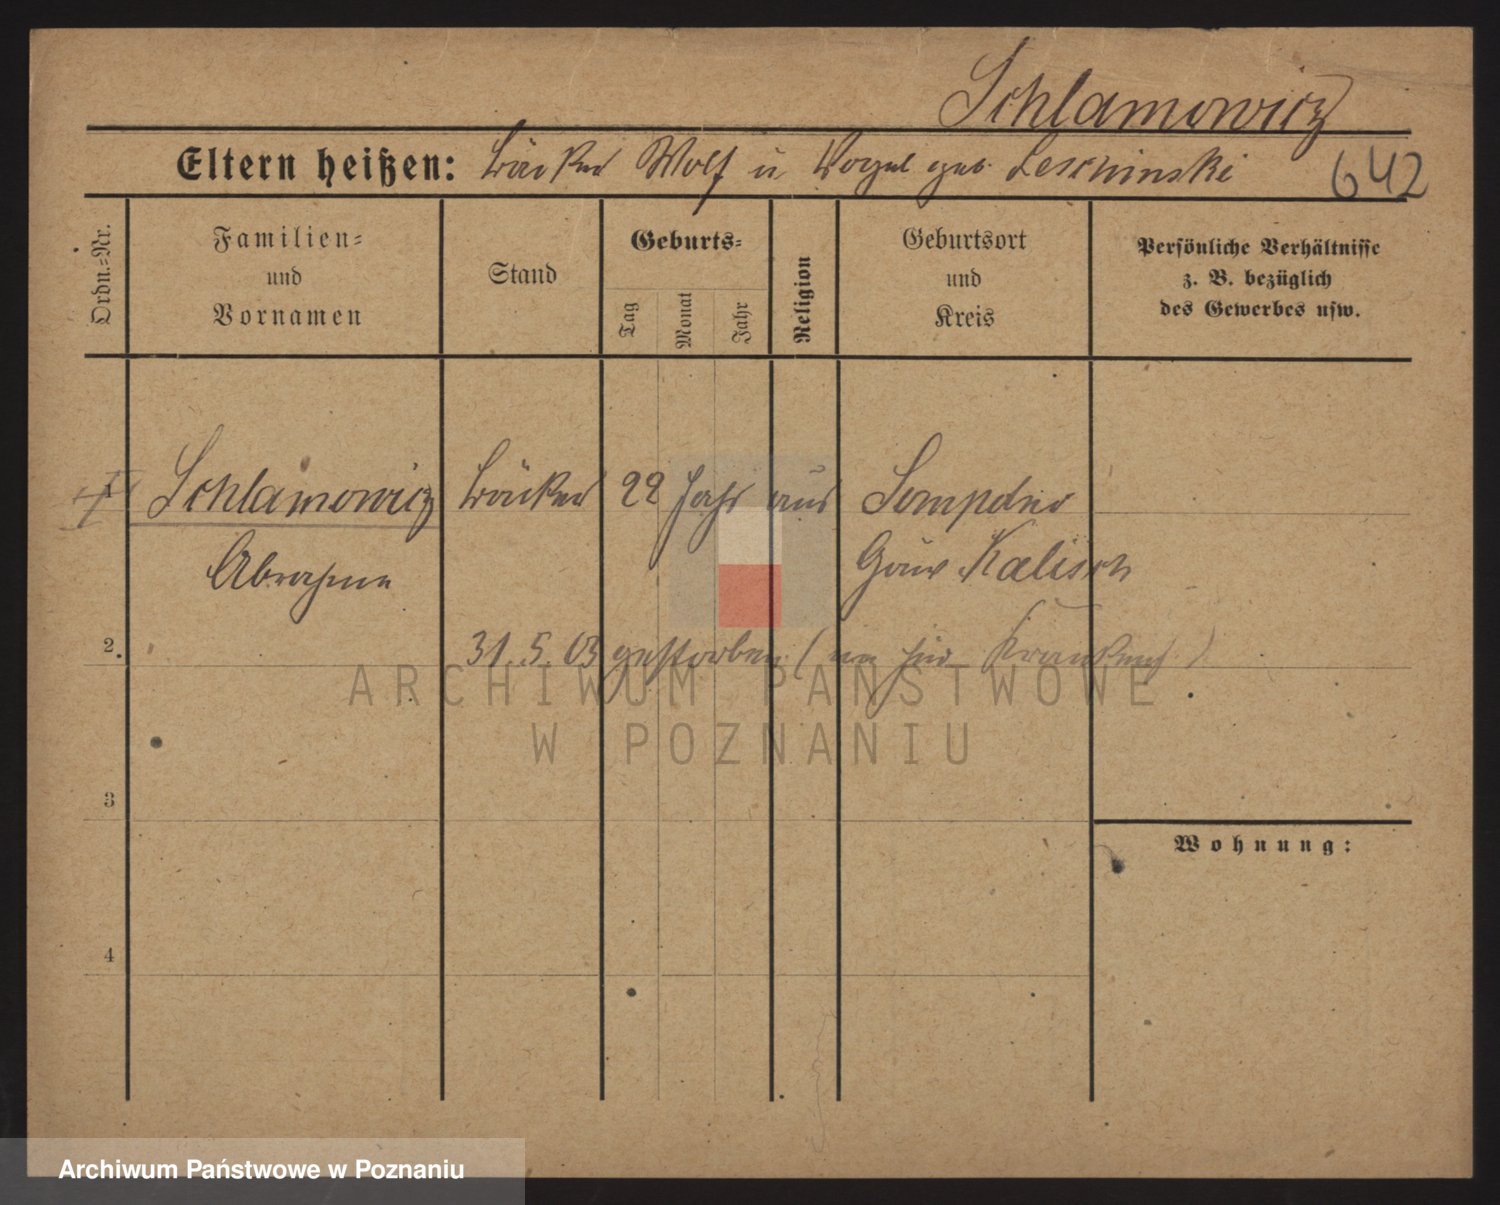 Schlamowicz
Eltern heißen: Bäcker Wolf u Vogel geb. Leschinski 642
Ordn.=Nr.
Familien=
und
Vornamen
Stand
Geburts=
Tag
Monat
Jahr
Religion
Geburtsort
und
Kreis
Persönliche Verhältnisse
z. B. bezüglich
des Gewerbes usw.
1 Schlamowicz Bäcker 22 Jahr aus Sompolno
Abraham Gouv Kalisch
2. 31. 5. 03 gestorben ( im jüd. Krankenh. )
ARCHIWUM PAŃSTWOWE
W POZNANIU
3
Wohnung:
4
Archiwum Państwowe w Poznaniu